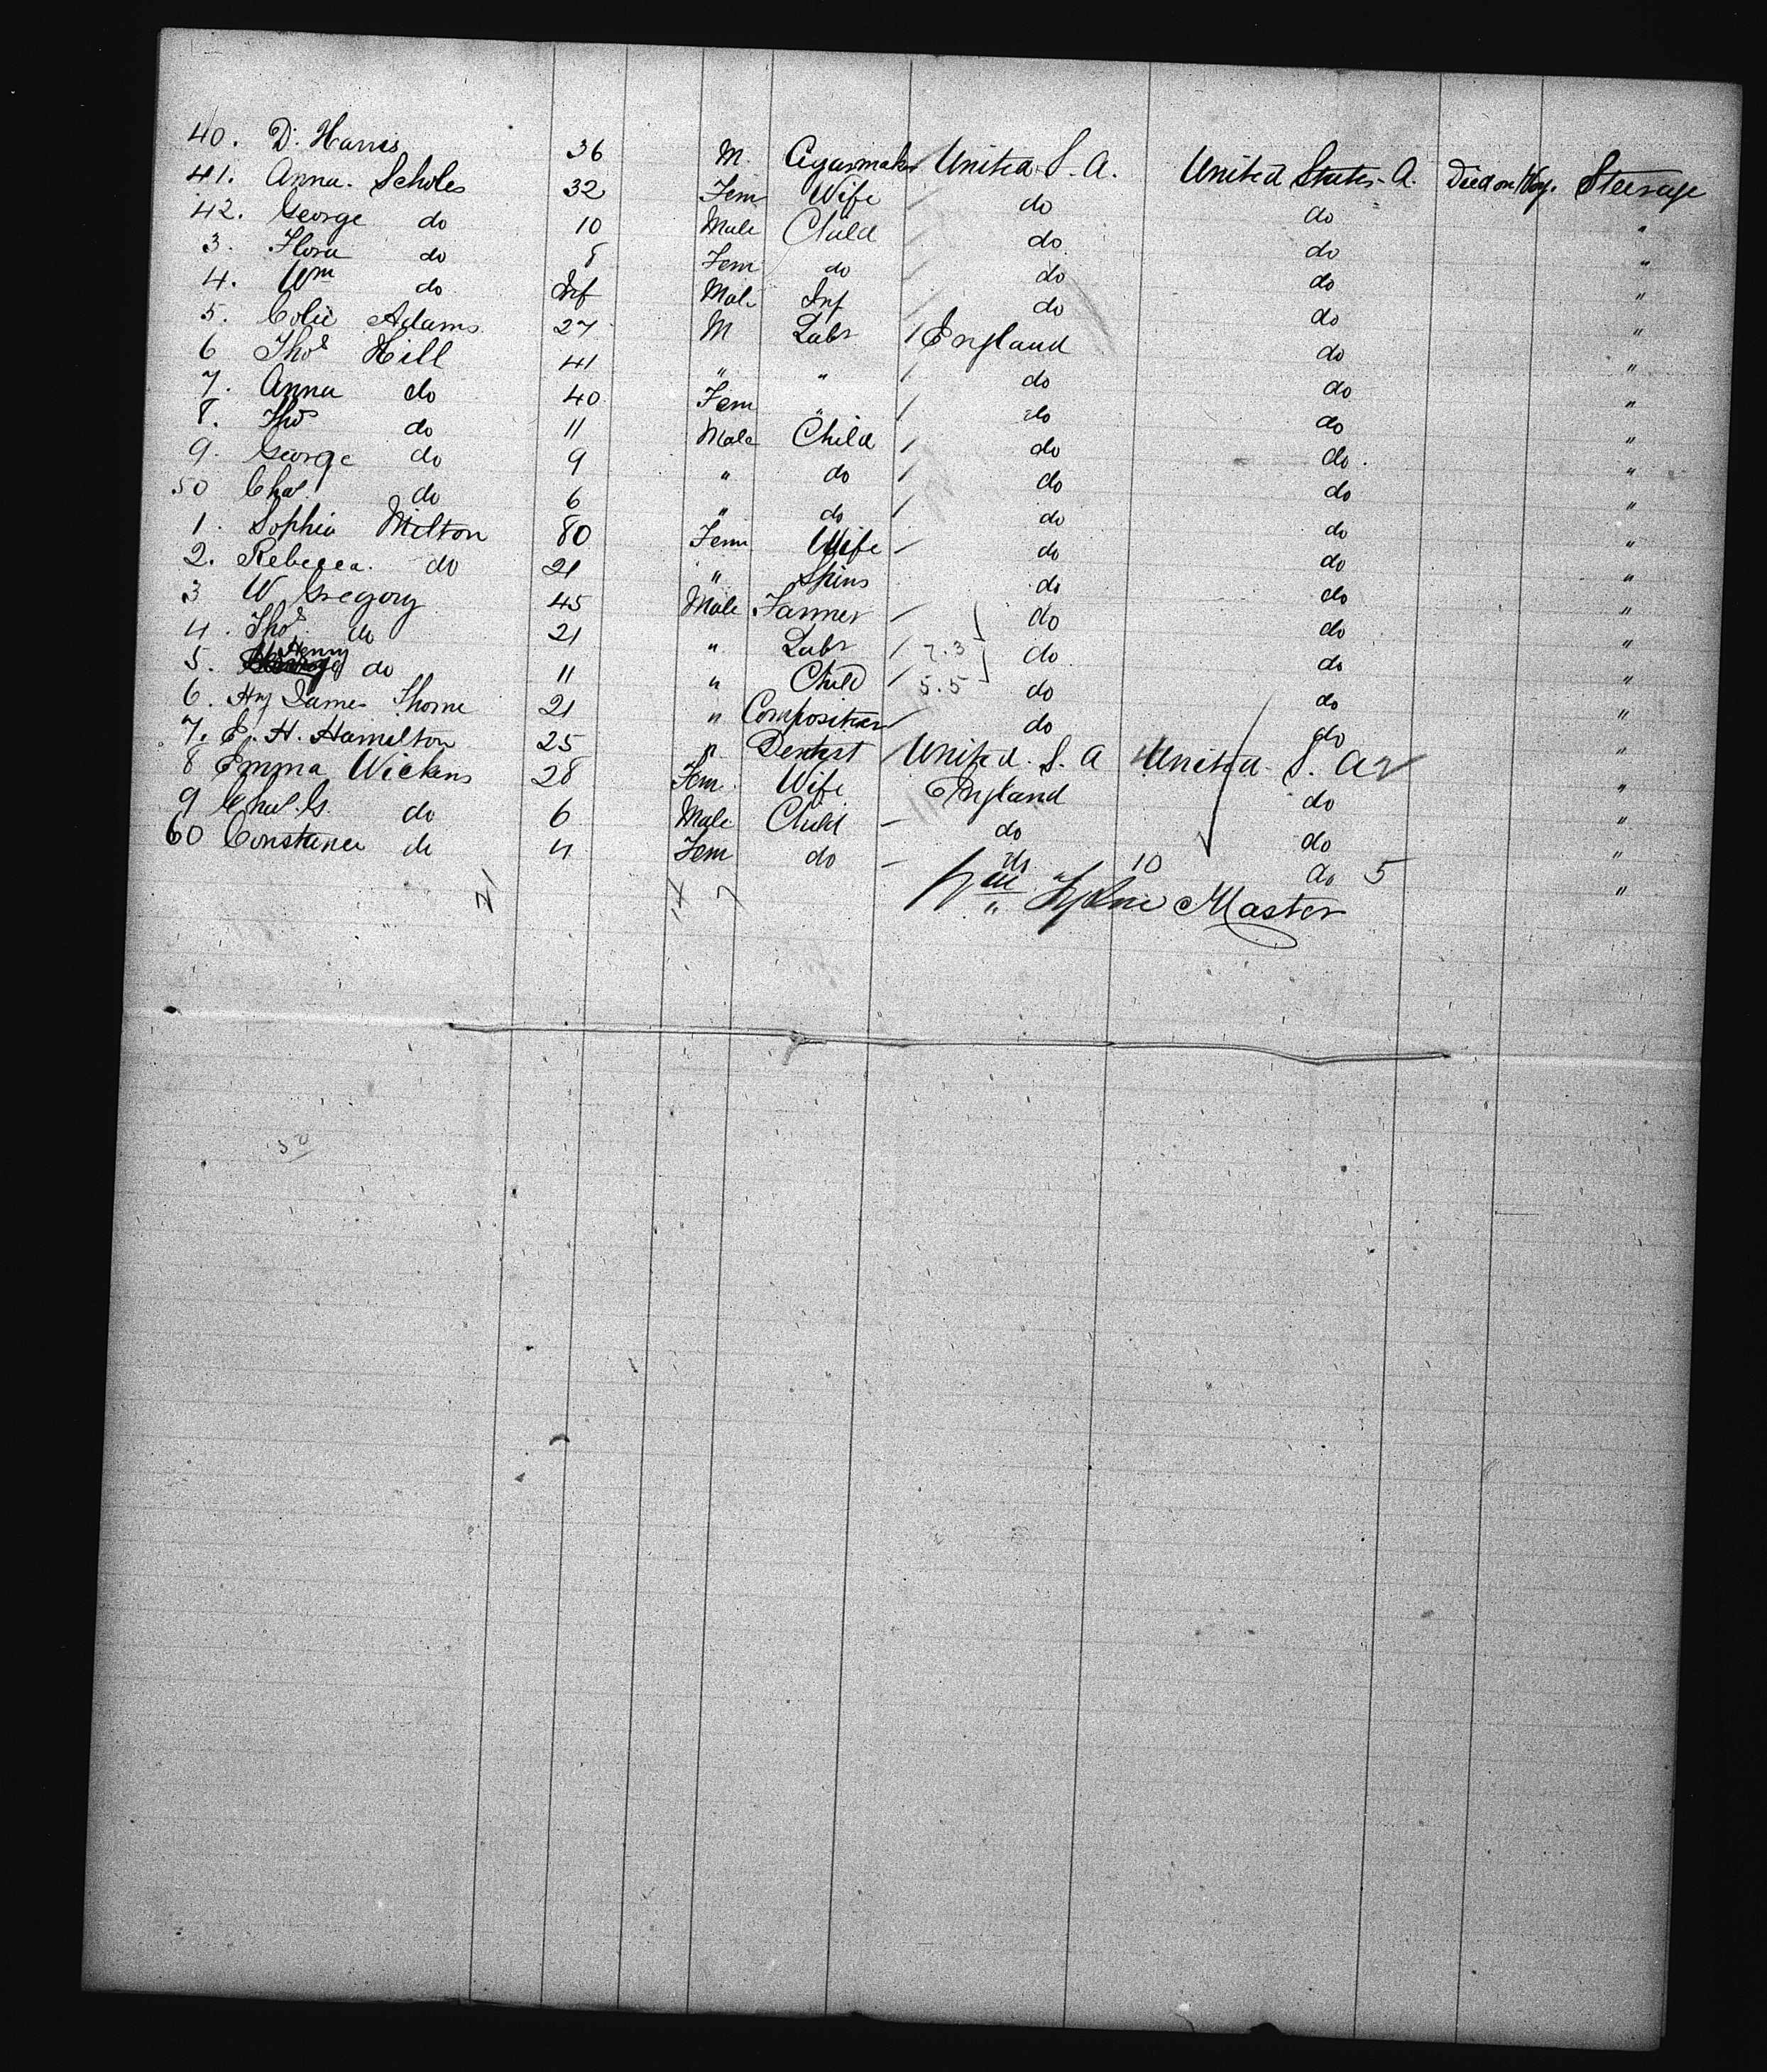 40. D. Harris 36 M. Cigarmaker United S. A. United States. A. Died on Voy. Steerage
41. Anna. Scholes 32 Fem Wife / do do "
42. George do 10 Male Child / do do "
3. Flora do 8 Fem do / do do "
4. Wm do Inf Male Inf / do do "
5. Colie Adams 27 M Labr / England do "
6 Thos Hill 41 " " / do do "
7. Anna do 40 Fem " / do do "
8. Thos do 11 Male Child / do do. "
9. George do 9 " do / do do "
50 Chas. do 6 " do / do do "
1. Sophia Milton 80 Fem Wife - do do "
2. Rebecca. do 21 " Spins do do "
3 W Gregory 45 Male Farmer / do do "
4. Thos. do 21 " Labr / 7.3 do do "
5. Henry do 11 " Child / 5.5 do do "
6. Hy James Thorne 21 " Compositor / do do "
7. E. H. Hamilton 25 " Dentist / United. S. A United S. A "
8 Emma Wickens 28 Fem. Wife England do "
9 Chas. G. do 6 Male Child - do do "
60 Constance do 4 Fem do - do 10 do 5 "
21 14 7 Wm Master